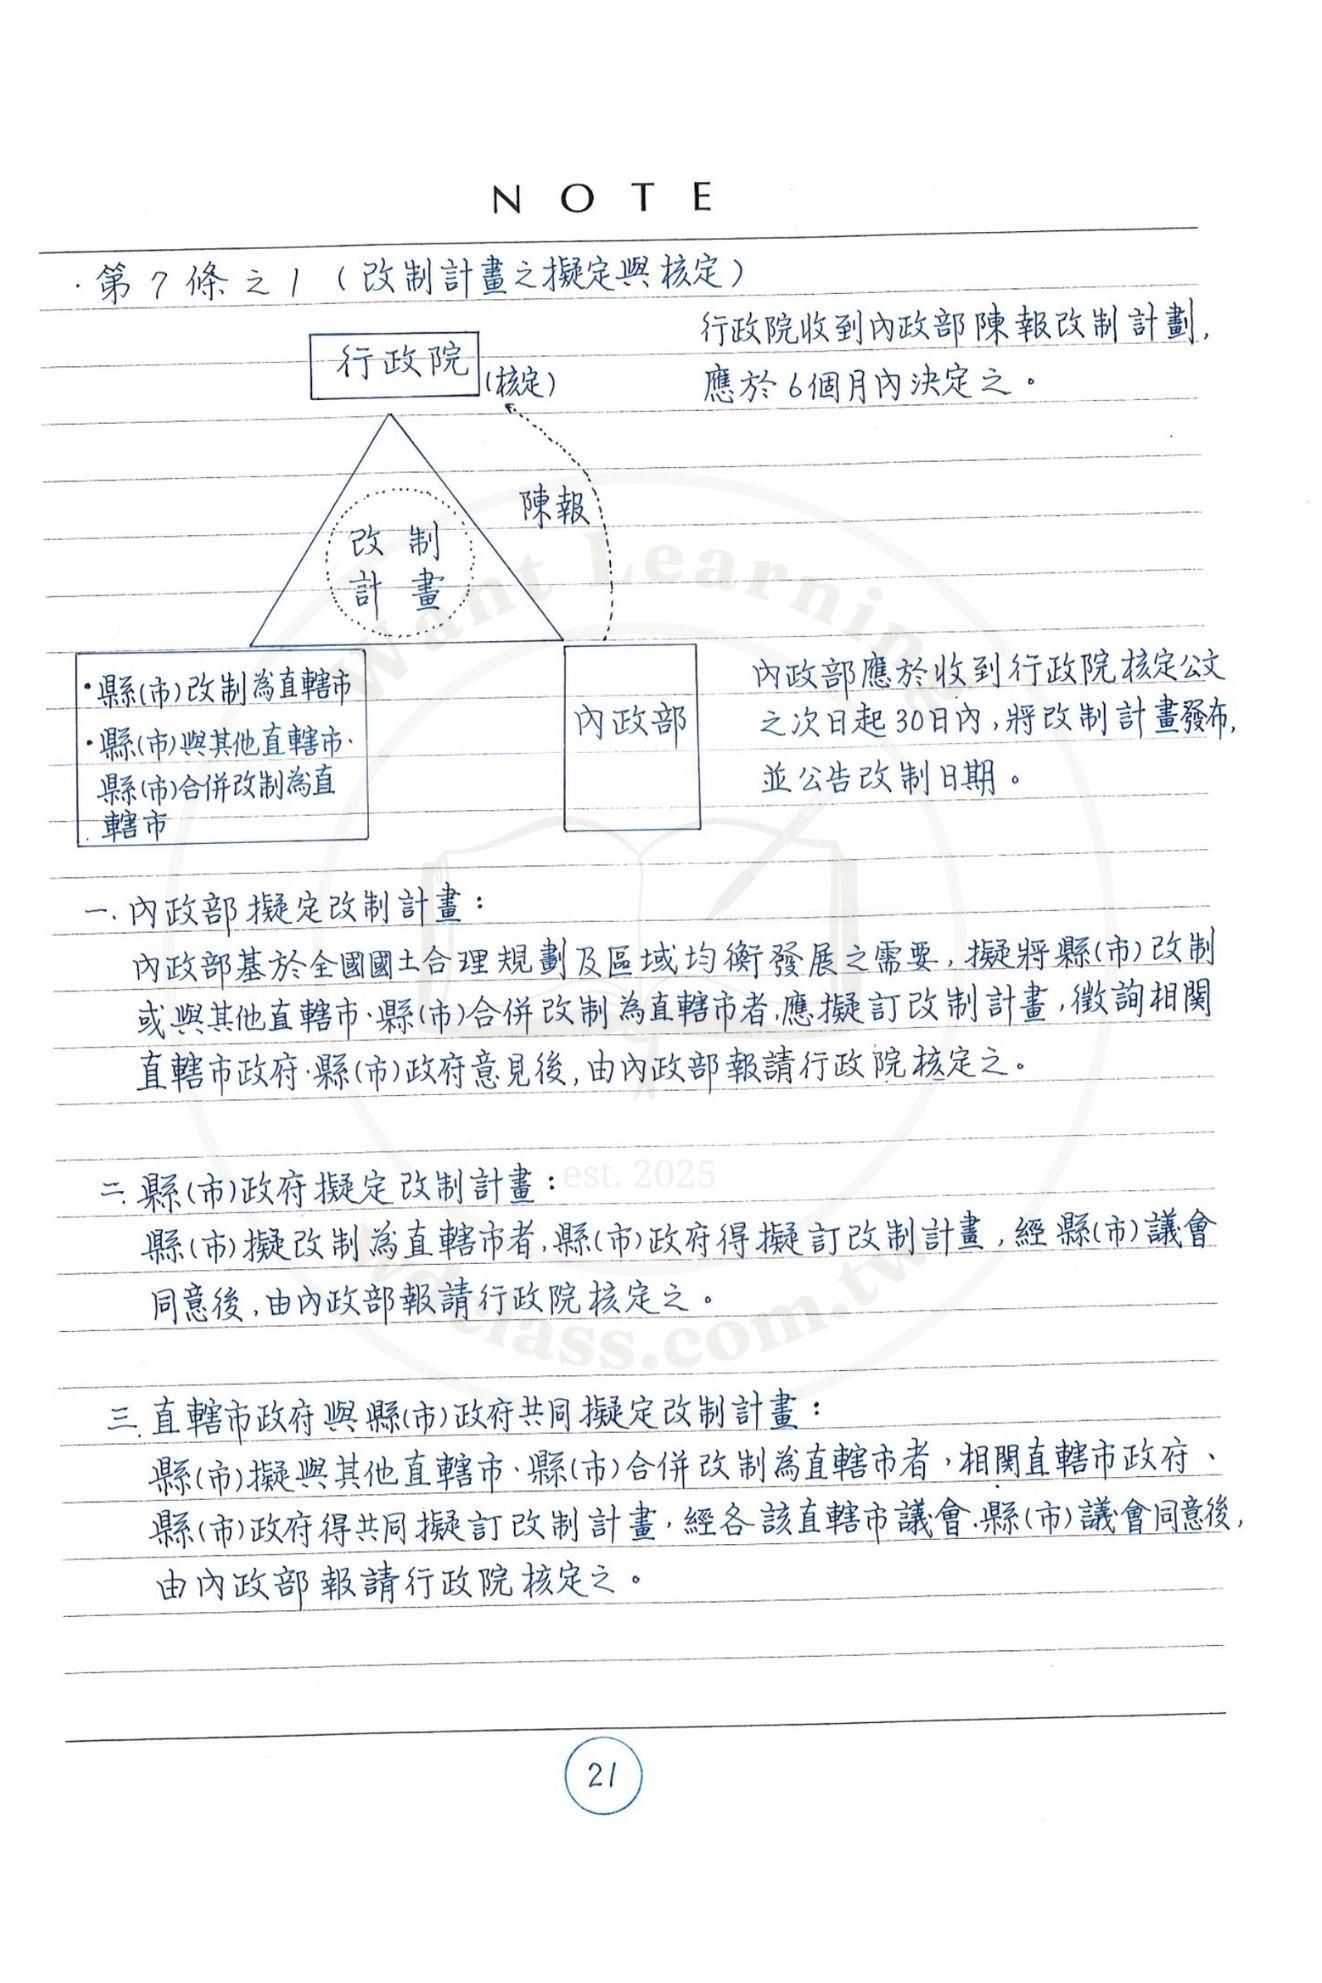 NOTE
·第7條之1（改制計畫之擬定與核定）
行政院
(核定)
行政院收到內政部陳報改制計劃，
應於6個月內決定之。
陳報
改制
計畫
·縣(市)改制為直轄市
·縣(市)與其他直轄市·
縣(市)合併改制為直
轄市
內政部
內政部應於收到行政院核定公文
之次日起30日內，將改制計畫發布，
並公告改制日期。
一.內政部擬定改制計畫：
內政部基於全國國土合理規劃及區域均衡發展之需要，擬將縣(市)改制
或與其他直轄市·縣(市)合併改制為直轄市者，應擬訂改制計畫，徵詢相關
直轄市政府·縣(市)政府意見後，由內政部報請行政院核定之。
二.縣(市)政府擬定改制計畫：
縣(市)擬改制為直轄市者，縣(市)政府得擬訂改制計畫，經縣(市)議會
同意後，由內政部報請行政院核定之。
三.直轄市政府與縣(市)政府共同擬定改制計畫：
縣(市)擬與其他直轄市·縣(市)合併改制為直轄市者，相關直轄市政府、
縣(市)政府得共同擬訂改制計畫，經各該直轄市議會·縣(市)議會同意後，
由內政部報請行政院核定之。
21
Want Learning
est. 2025
wdclass.com.tw